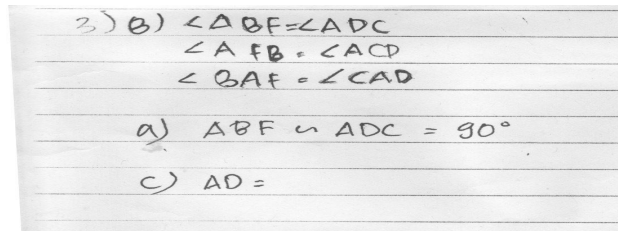 3) B) ∠ABF=∠ADC
∠AFB = ∠ACD
∠BAF = ∠CAD
a) ABF ∽ ADC = 90°
c) AD =